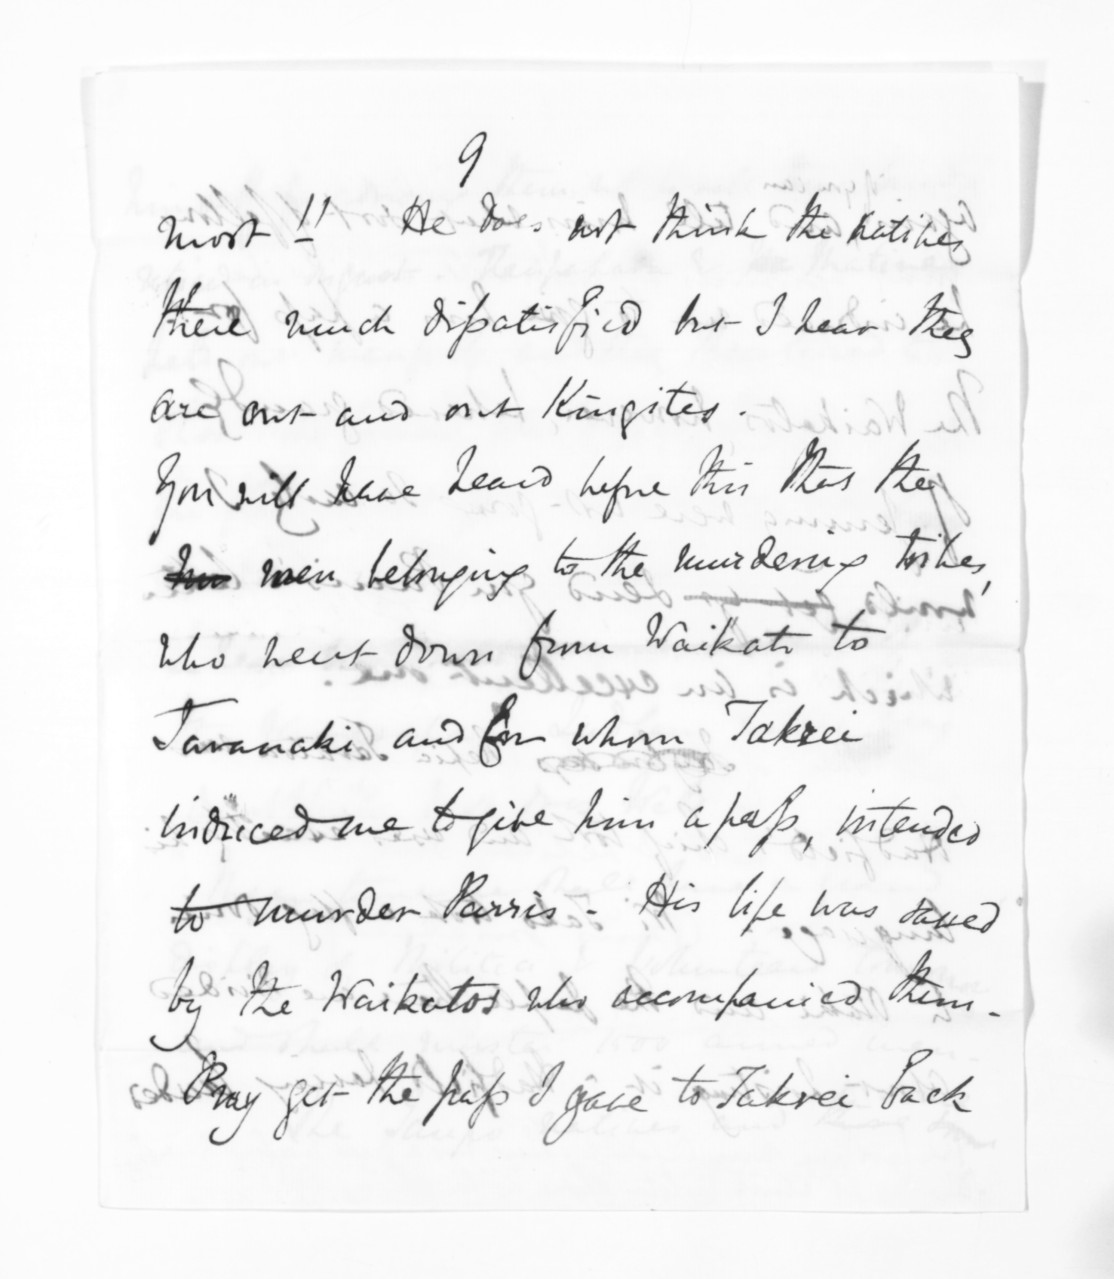 9
most !! He does not think the natives
there much dissatisfied but I hear they
are out and out Kingites.
You will have heard before this that the
men belonging to the murdering tribes,
who went down from Waikato to
Taranaki and for whom Takrei
induced me to give him a pass, intended
to murder Parris - His life was saved
by the Waikatos who accompanied them.
Pray get the pass I gave to Takrei back